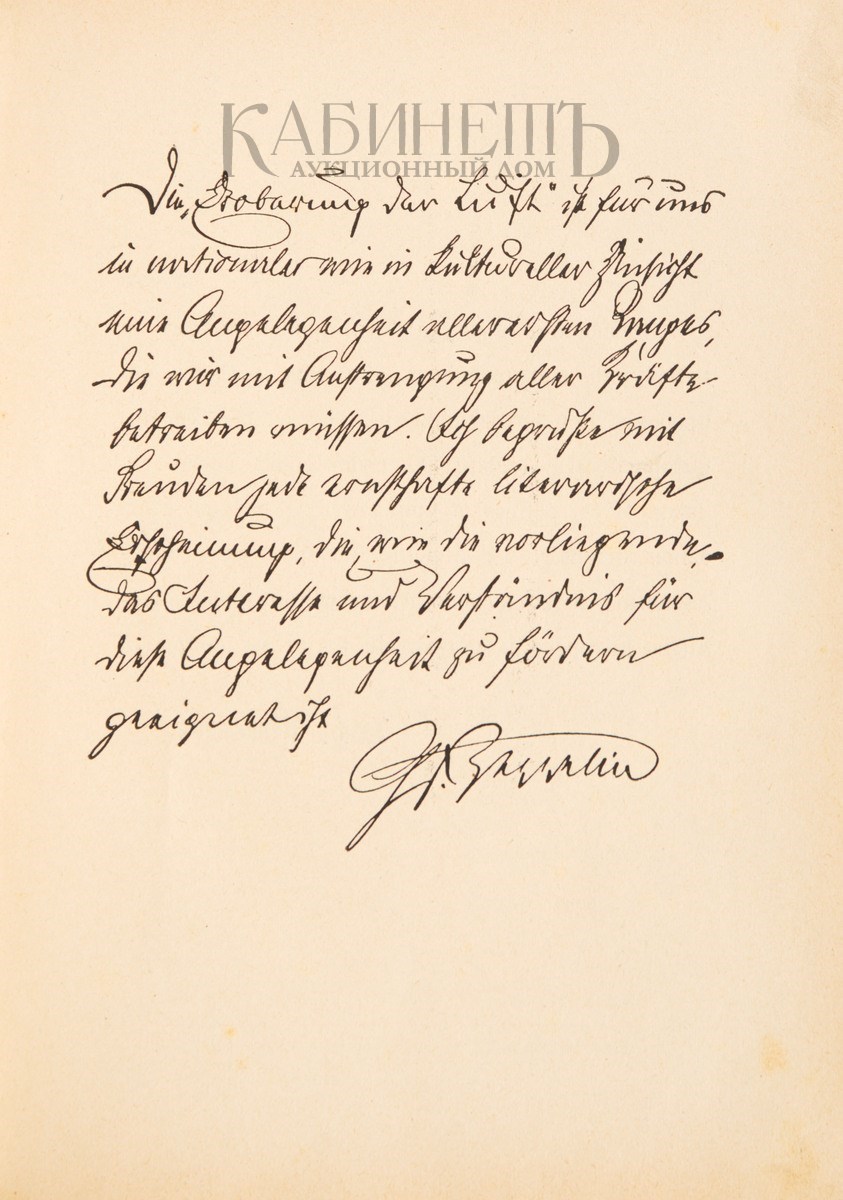 КАБИНЕТЪ
АУКЦИОННЫЙ ДОМ
Die „Eroberung der Luft" ist für uns
in nationaler wie in kultureller Hinsicht
eine Angelegenheit allerersten Ranges,
die wir mit Anstrengung aller Kräfte
betreiben müssen. Ich begrüße mit
Freuden jede ernsthafte literarische
Erscheinung, die, wie die vorliegende,
das Interesse und Verständnis für
diese Angelegenheit zu fördern
geeignet ist
Gf. Zeppelin